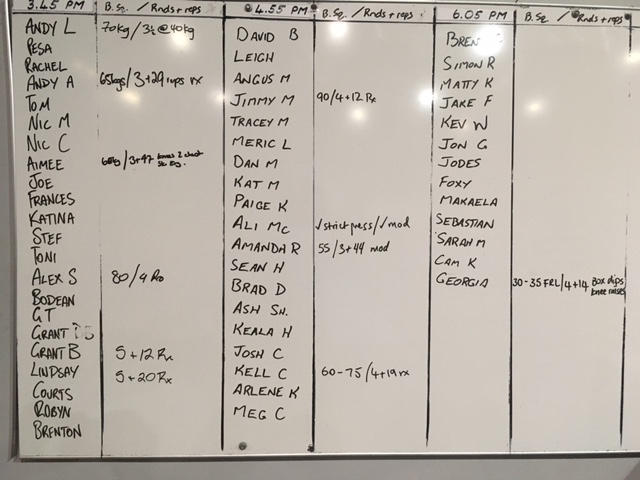 3.45 PM B.Sq. / Rnds + reps
ANDY L 70kg / 3½ @ 40kg
PESA
RACHEL
ANDY A 65kgs / 3+29 reps rx
TOM
NIC M
NIC C
AIMEE 60kg / 3+47 knees 2 chest
JOE
FRANCES
KATINA
STEF
TONI
ALEX S 80 / 4 Rx
BODEAN
GT
GRANT
GRANT B 5 + 12 Rx
LINDSAY 5 + 20 Rx
COURTS
ROBYN
BRENTON
4.55 PM B.Sq. / Rnds + reps
DAVID B
LEIGH
ANGUS M
JIMMY M 90 / 4+12 Rx
TRACEY M
MERIC L
DAN M
KAT M
PAIGE K
ALI MC √ strict press / √ mod
AMANDA R 55 / 3+44 mod
SEAN H
BRAD D
ASH SH.
KEALA H
JOSH C
KELL C 60-75 / 4+19 rx
ARLENE K
MEG C
6.05 PM B.Sq / Rnds + reps
BREN
SIMON R
MATTY K
JAKE F
KEV W
JON G
JODES
FOXY
MAKAELA
SEBASTIAN
SARAH M
CAM K
GEORGIA 30-35 FRL / 4+14 Box dips
knee raises